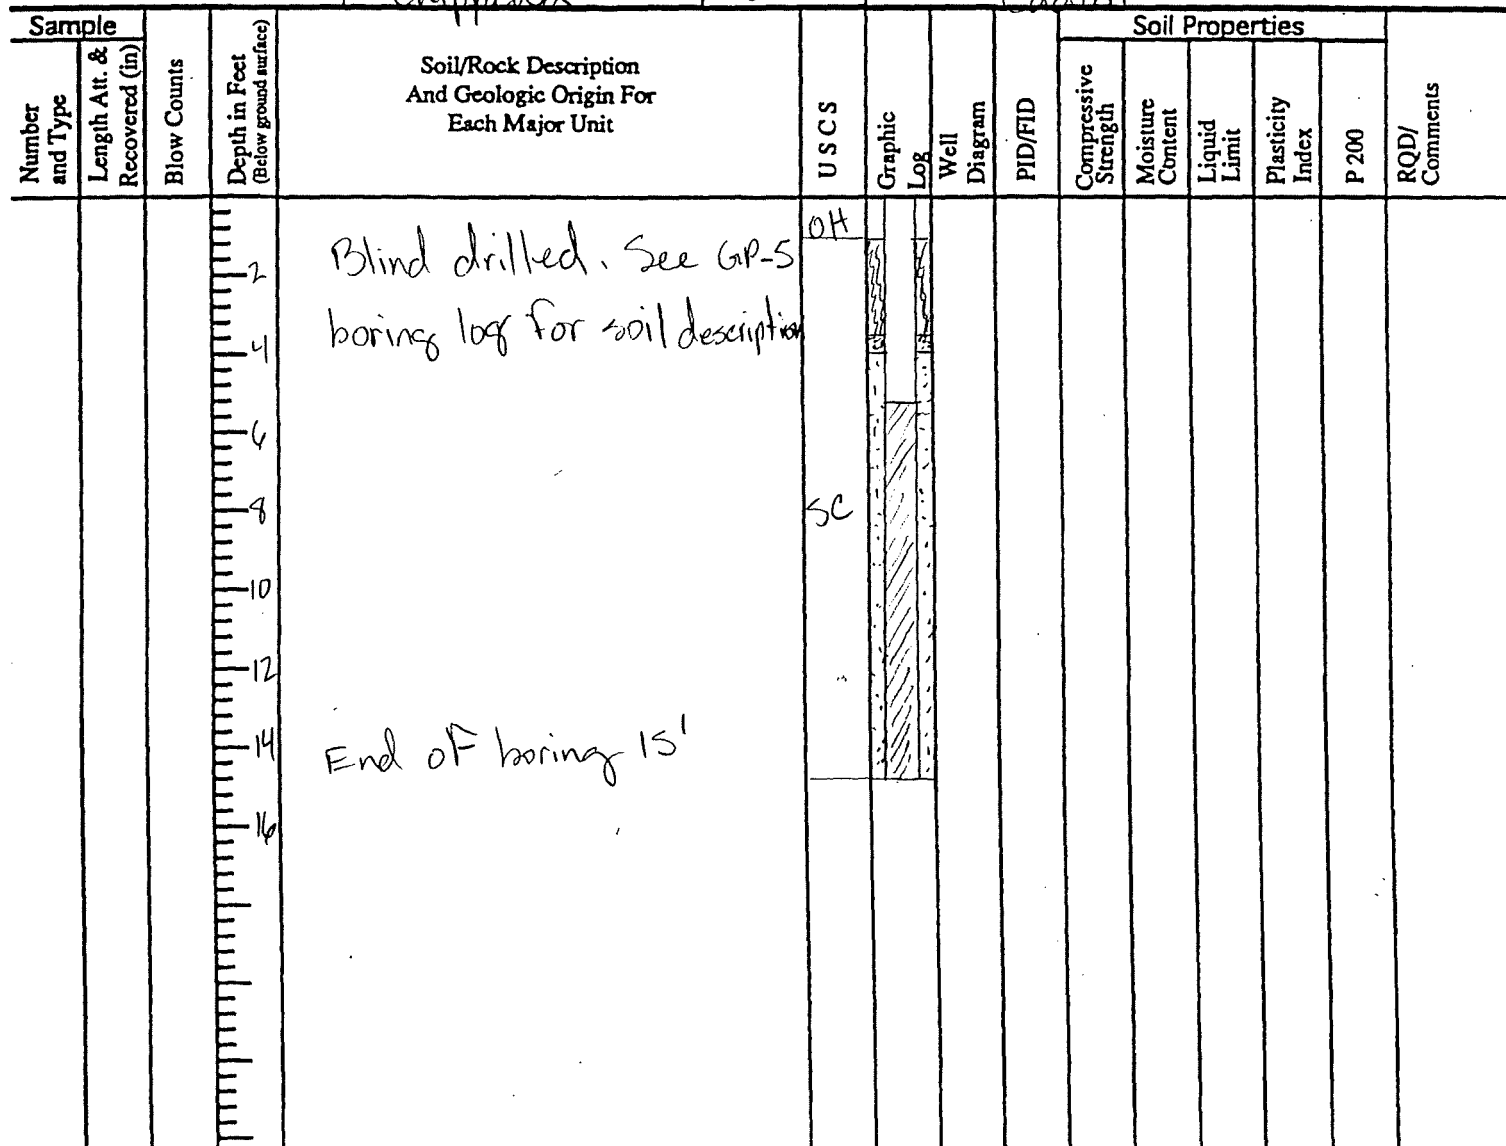 Sample
Soil Properties
Number
and Type
Length Att. &
Recovered (in)
Blow Counts
Depth in Feet
(Below ground surface)
Soil/Rock Description
And Geologic Origin For
Each Major Unit
U S C S
Graphic
Log
Well
Diagram
PID/FID
Compressive
Strength
Moisture
Content
Liquid
Limit
Plasticity
Index
P 200
RQD/
Comments
OH
Blind drilled. See GP-5
2
boring log for soil description
4
6
8
SC
10
12
14
End of boring 15'
16